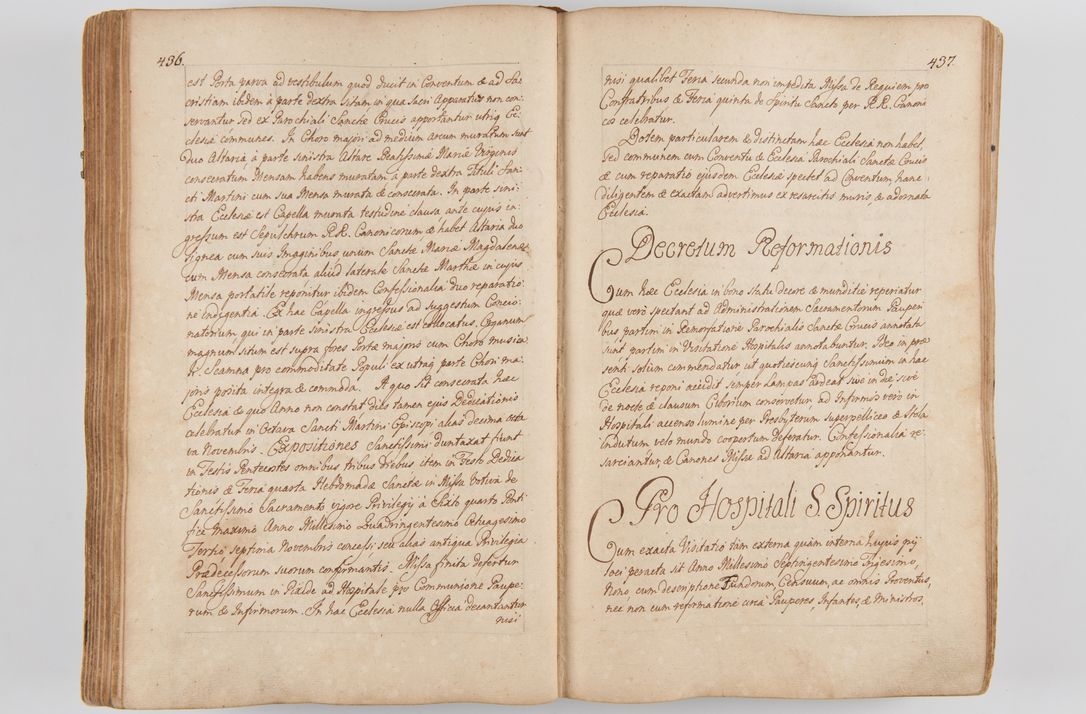 436.
est Porta parva ad vestibulum quod ducit in Conventum & ad Sa-
cristiam ibidem à parte dextra sitam in qua Sacri Apparatus non con-
servantur sed ex Parochiali Sanctæ Crucis apportantur utriq Ec-
clesiæ communes. In Choro majori ad medium arcum muratum sunt
duo Altaria à parte sinistra Altare Beatissimæ Mariæ Virginis
consecratum Mensam habens muratam à parte dextra Tituli San-
cti Martini cum sua Mensa murata & consecrata. In parte sini-
stra Ecclesiæ est Capella murata testudine clausa, ante cujus in-
gressum est Sepulchrum R.R. Canonicorum & habet Altaria duo
lignea cum suis Imaginibus unum Sanctæ Mariæ Magdalenæ
cum Mensa consecrata aliud laterale Sanctæ Marthæ in cujus
Mensa portatile reponitur ibidem Confessionalia duo reparatio-
ne indigentia. Ex hac Capella ingressus ad suggestum Concio-
natorium, qui in parte sinistra Ecclesiæ est collocatus. Organum
magnum situm est supra fores Portæ majoris cum Choro musica
li. Scamna pro commoditate Populi ex utraq parte Chori ma-
joris posita integra & commoda. A quo sit consecrata hæc
Ecclesia & quo Anno non constat dies tamen ejus Dedicationis
celebratur in Octava Sancti Martini Episcopi alias decima octa
va Novembris. Expositiones Sanctissimi duntaxat fiunt
in Festis Pentecostes omnibus tribus diebus item in Festo Dedica
tionis & Feria quarta Hebdomadæ Sanctæ in Missa Votiva de
Sanctissimo Sacramento vigore Privilegij à Sixto quarto Ponti
fice maximo Anno Millesimo Quadringentesimo Octuagesimo
Tertio septima Novembris concessi seu alias antiqua Privilegia
Prædecessorum suorum confirmantis. Missa finita defertur
Sanctissimum in Pixide ad Hospitale pro Communione Paupe-
rum, & Infirmorum. In hac Ecclesia nulla Officia decantantur
nisi
437.
nisi qualibet Feria secunda non impedita Missa de Requiem pro
Confratribus & Feria quinta de Spiritu Sancto per R.R. Canoni
cos celebratur.
Dotem particularem & distinctam hæc Ecclesia non habet,
sed communem cum Conventu & Ecclesia Parochiali Sanctæ Crucis
& cum reparatio ejusdem Ecclesiæ spectet ad Conventum, hanc
diligentem & exactam advertimus ex resarcitis muris, & adornata
Ecclesia.
Decretum Reformationis
Cum hæc Ecclesia in bono statu decore & munditie reperiatur
quæ verò spectant ad Administrationem Sacramentorum Pauperi
bus, partim in Reformatione Parochialis Sanctæ Crucis annotata
sunt, partim in Visitatione Hospitalis annotabuntur. Ideo in præ
senti solum commendatur ut quotiescunq Sanctissimum in hac
Ecclesia reponi acciderit semper Lampas ardeat sive in die, sive
de nocte & clausum Ciborium conservetur, ad Infirmos verò in
Hospitali accenso lumine per Presbyterum Superpelliceo & Stola
indutum velo mundo coopertum deferatur. Confessionalia re-
sarciantur, & Canones Missæ ad Altaria apponantur.
Pro Hospitali S. Spiritus
Cum exacta Visitatio tam externa quàm interna hujus pij
loci peracta sit Anno Millesimo Septingentesimo Trigesimo,
Nono, cum descriptione Fundorum Censuum, ac omnis Proventus,
nec non cum reformatione circa Pauperes, Infantes, & Ministros,